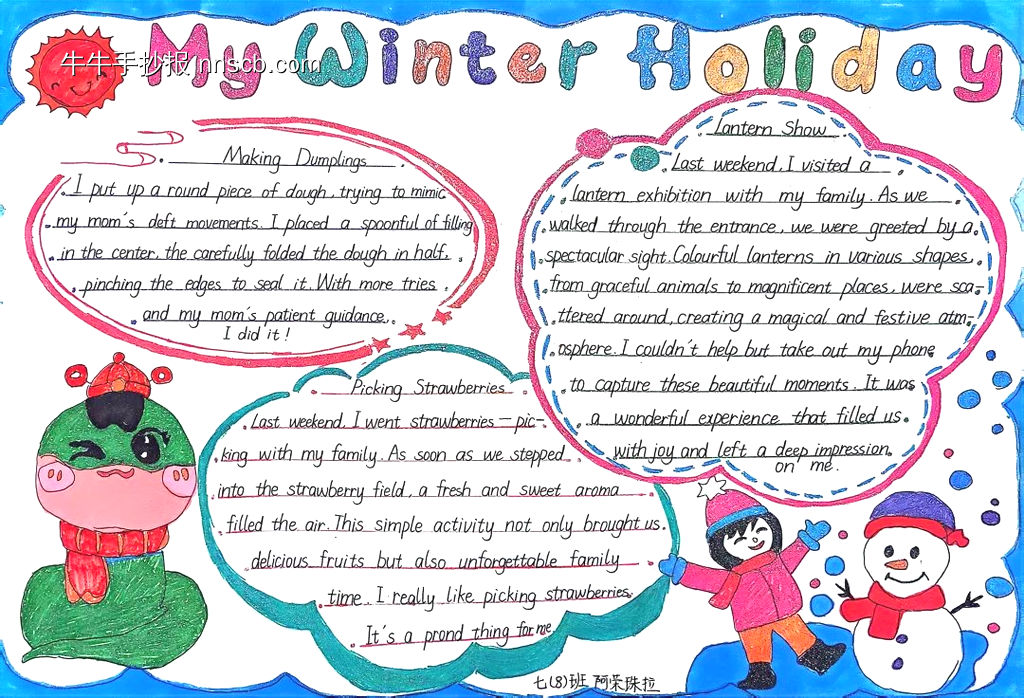 牛牛手抄报 nnscb.com
My Winter Holiday
Making Dumplings
I put up a round piece of dough, trying to mimic
my mom's deft movements. I placed a spoonful of filling
in the center, the carefully folded the dough in half,
pinching the edges to seal it. With more tries
and my mom's patient guidance,
I did it!
Lantern Show
Last weekend, I visited a
lantern exhibition with my family. As we
walked through the entrance, we were greeted by a
spectacular sight. Colourful lanterns in various shapes
from graceful animals to magnificent places, were sca-
ttered around, creating a magical and festive atm-
osphere. I couldn't help but take out my phone
to capture these beautiful moments. It was
a wonderful experience that filled us
with joy and left a deep impression
on me.
Picking Strawberries
Last weekend, I went strawberries-pic-
king with my family. As soon as we stepped
into the strawberry field, a fresh and sweet aroma
filled the air. This simple activity not only brought us
delicious fruits but also unforgettable family
time. I really like picking strawberries.
It's a prond thing for me
七(8)班 阿荣珠拉